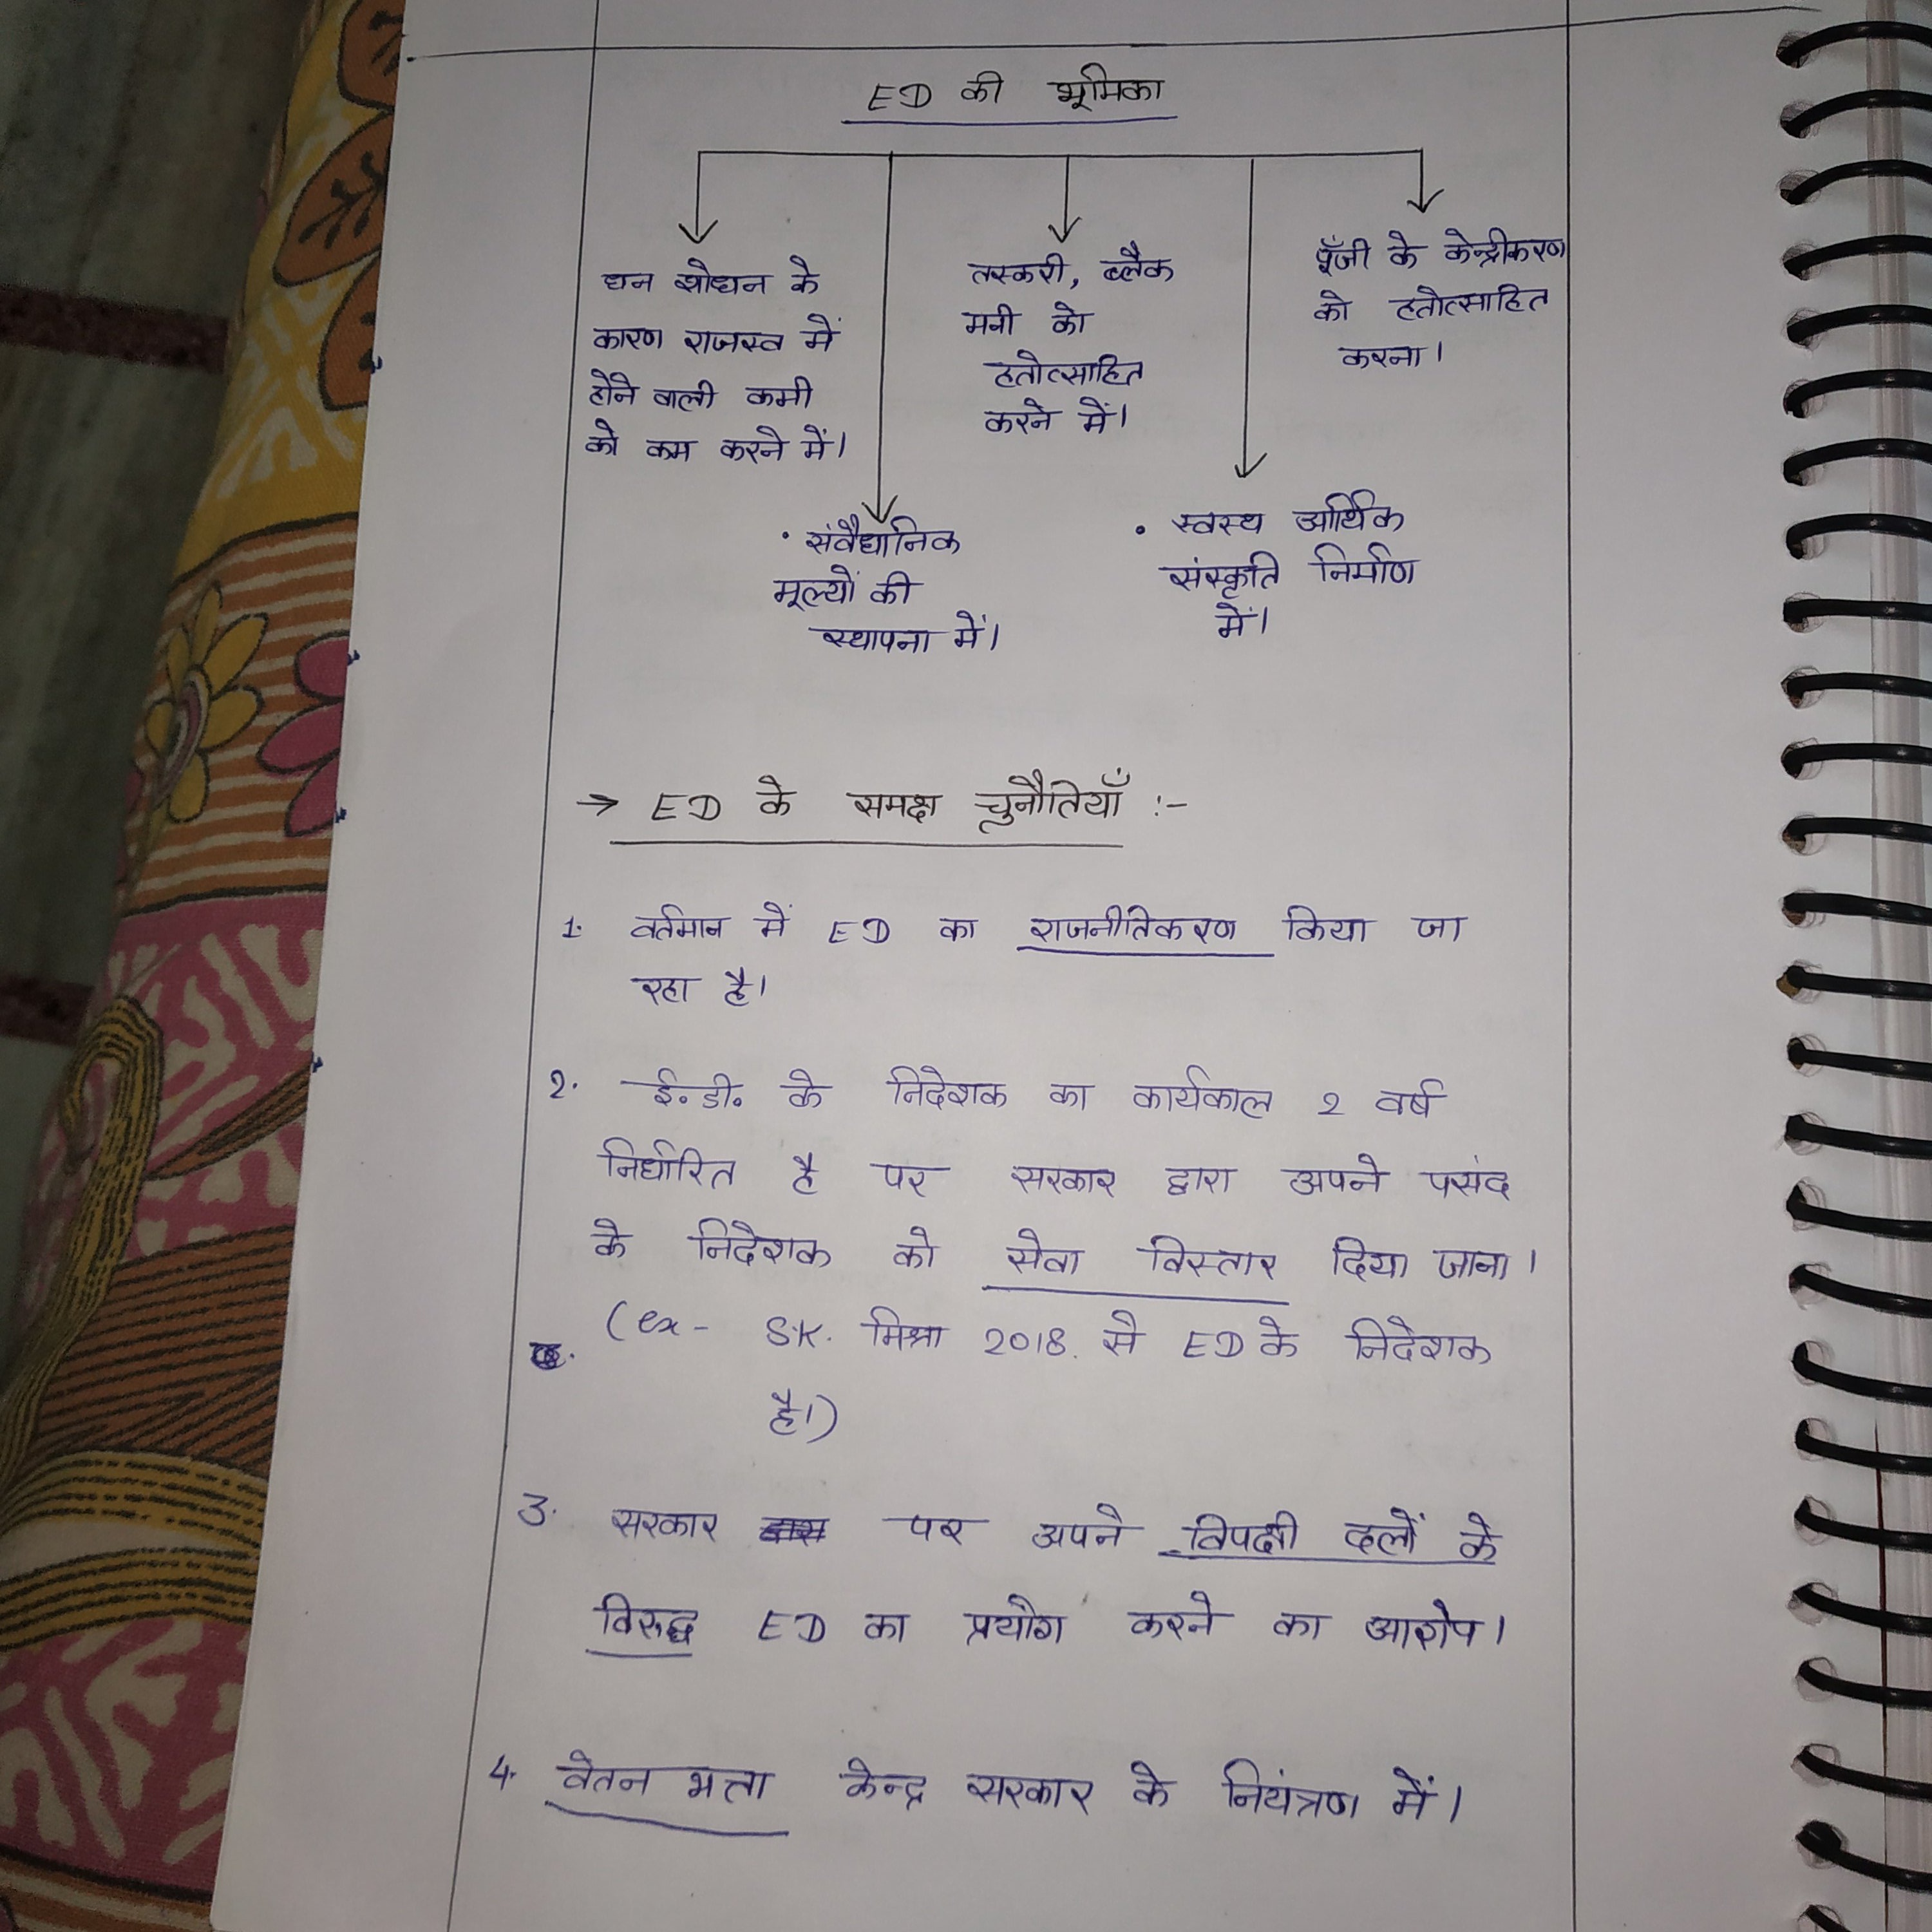 ED की भूमिका
धन शोधन के
कारण राजस्व में
होने वाली कमी
को कम करने में।
• संवैधानिक
मूल्यों की
स्थापना में।
तस्करी, ब्लैक
मनी को
हतोत्साहित
करने में।
• स्वस्थ आर्थिक
संस्कृति निर्माण
में।
पूँजी के केन्द्रीकरण
को हतोत्साहित
करना।
→ ED के समक्ष चुनौतियाँ :-
1. वर्तमान में ED का राजनीतिकरण किया जा
रहा है।
2. ई.डी. के निदेशक का कार्यकाल 2 वर्ष
निर्धारित है पर सरकार द्वारा अपने पसंद
के निदेशक को सेवा विस्तार दिया जाना।
(ex- S.K. मिश्रा 2018 से ED के निदेशक
है।)
3. सरकार पर अपने विपक्षी दलों के
विरुद्ध ED का प्रयोग करने का आरोप।
4. वेतन भत्ता केन्द्र सरकार के नियंत्रण में।